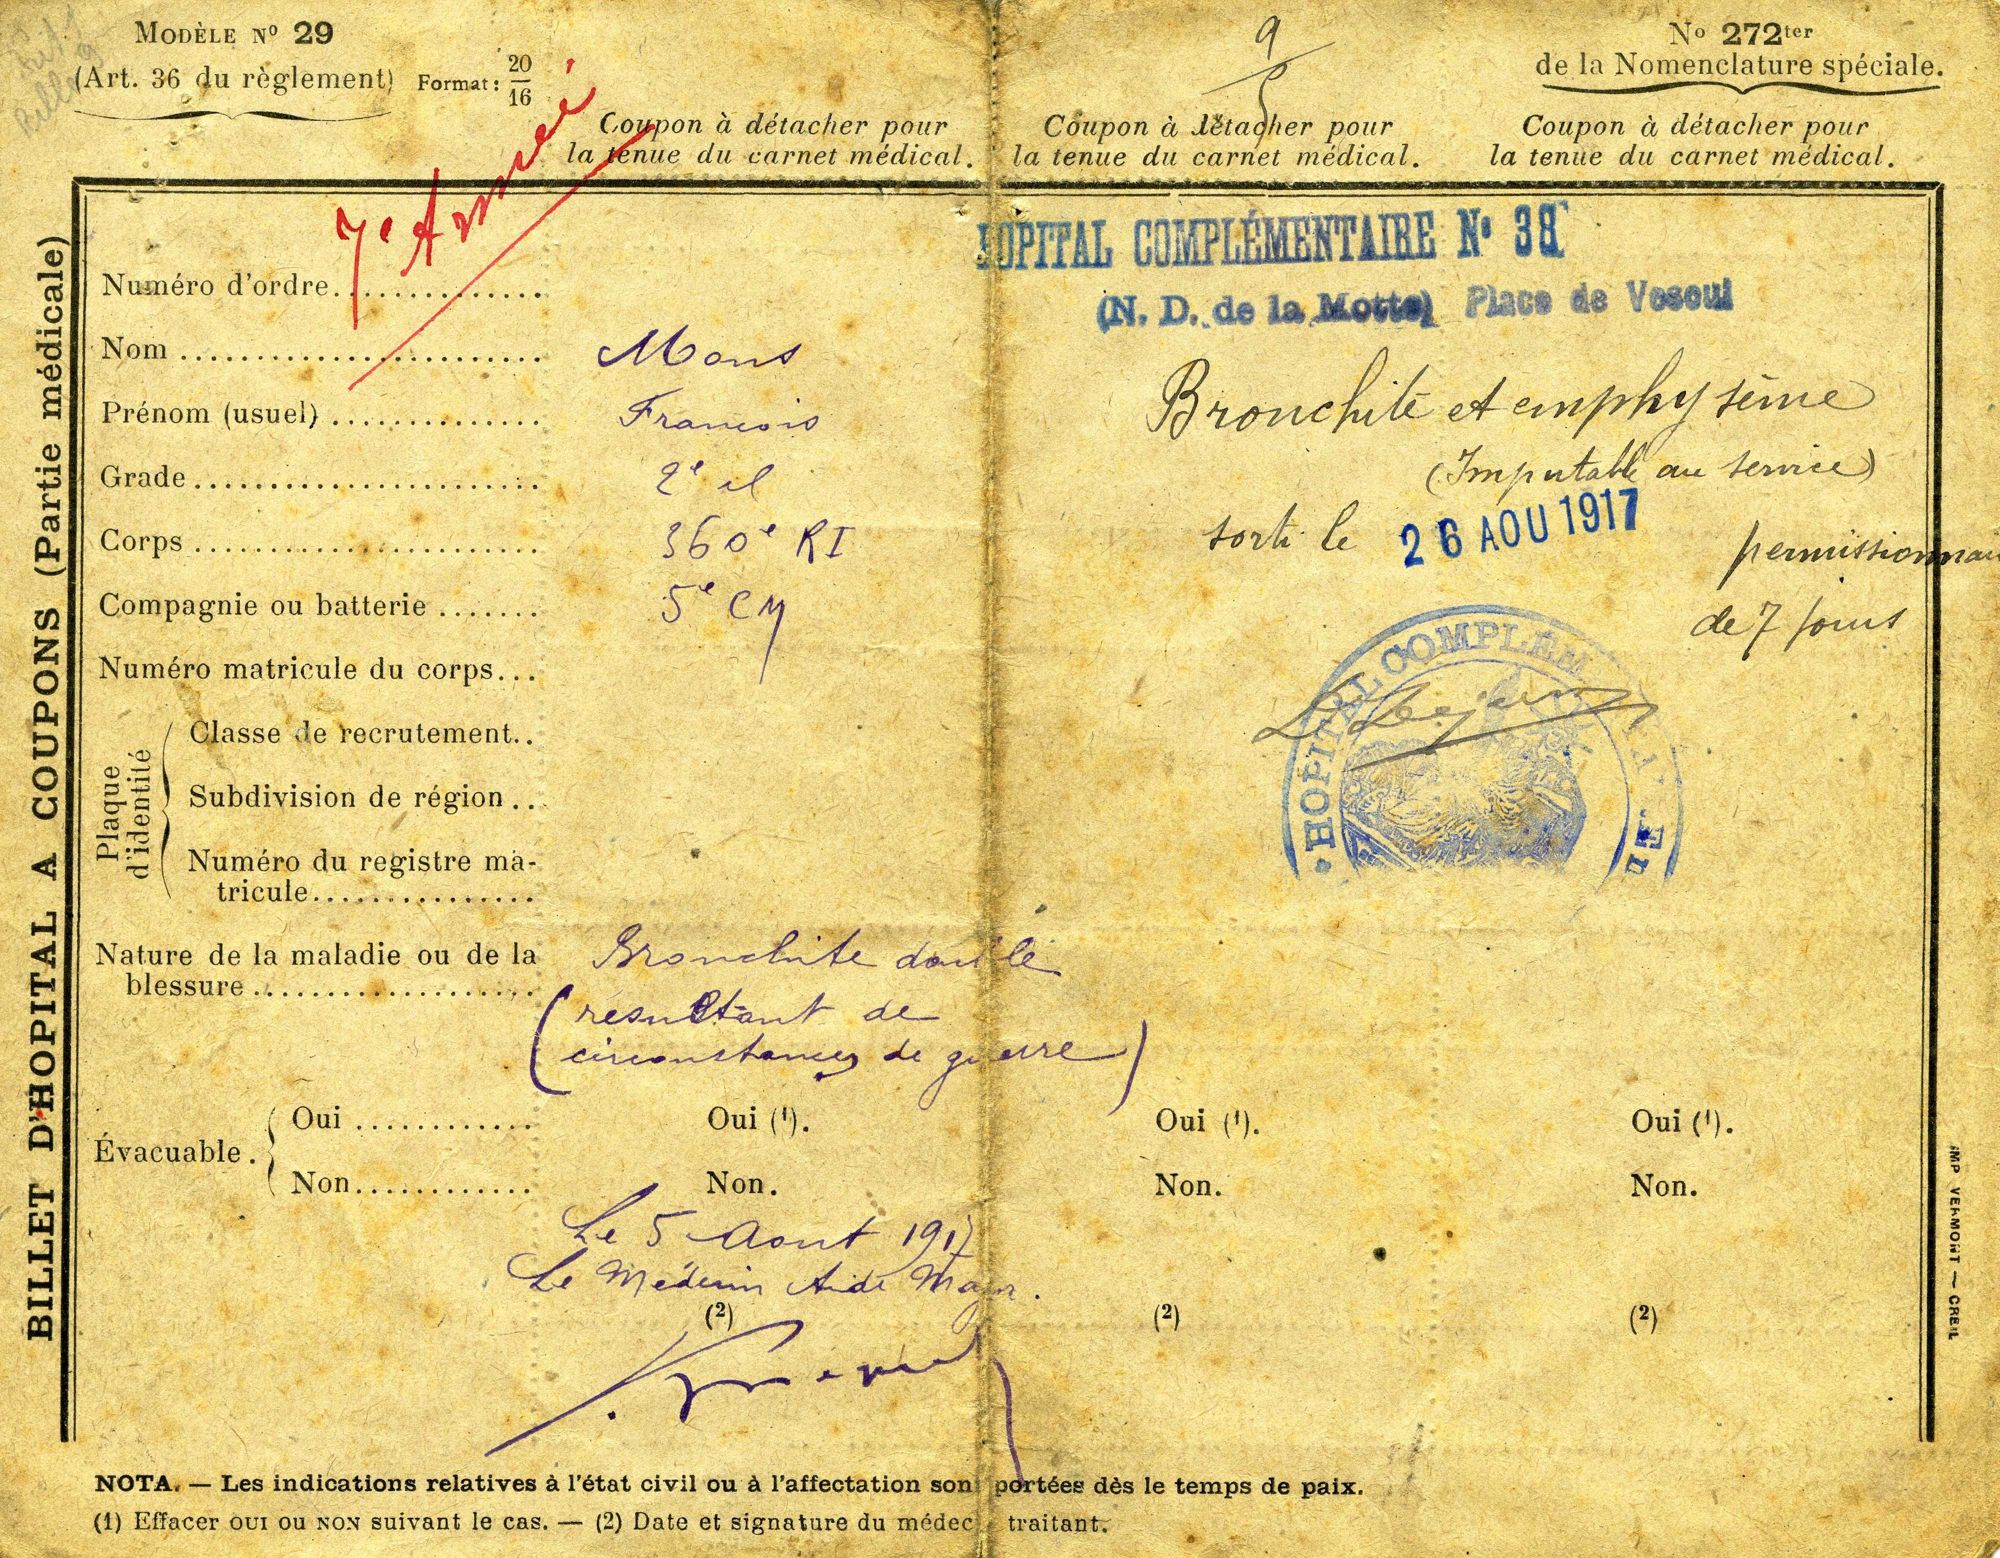 MODÈLE Nº 29
(Art. 36 du règlement) Format: 20/16
9/5
Nº 272ter
de la Nomenclature spéciale.
Coupon à détacher pour
la tenue du carnet médical.
Coupon à détacher pour
la tenue du carnet médical.
Coupon à détacher pour
la tenue du carnet médical.
7e Armée
BILLET D'HOPITAL A COUPONS (Partie médicale)
Numéro d'ordre
Nom Mons
Prénom (usuel) Francois
Grade 2e cl
Corps 360e RI
Compagnie ou batterie 5e CM
Numéro matricule du corps
Plaque d'identité
Classe de recrutement
Subdivision de région
Numéro du registre ma-
tricule
Nature de la maladie ou de la
blessure
Bronchite double
(resultant de
circonstances de guerre)
Évacuable.
Oui
Non
Oui (1).
Non.
Le 5 Aout 1917
Le Médecin Aide Major.
(2)
HOPITAL COMPLÉMENTAIRE Nº 38
(N. D. de la Motte) Place de Vesoul
Bronchite et emphysème
(Imputable au service)
sorti le 26 AOU 1917 permissionnai
de 7 jours
HOPITAL COMPLÉM
Oui (1).
Non.
(2)
Oui (1).
Non.
(2)
IMP VERMONT — CREIL
NOTA. — Les indications relatives à l'état civil ou à l'affectation son portées dès le temps de paix.
(1) Effacer OUI ou NON suivant le cas. — (2) Date et signature du médec traitant.